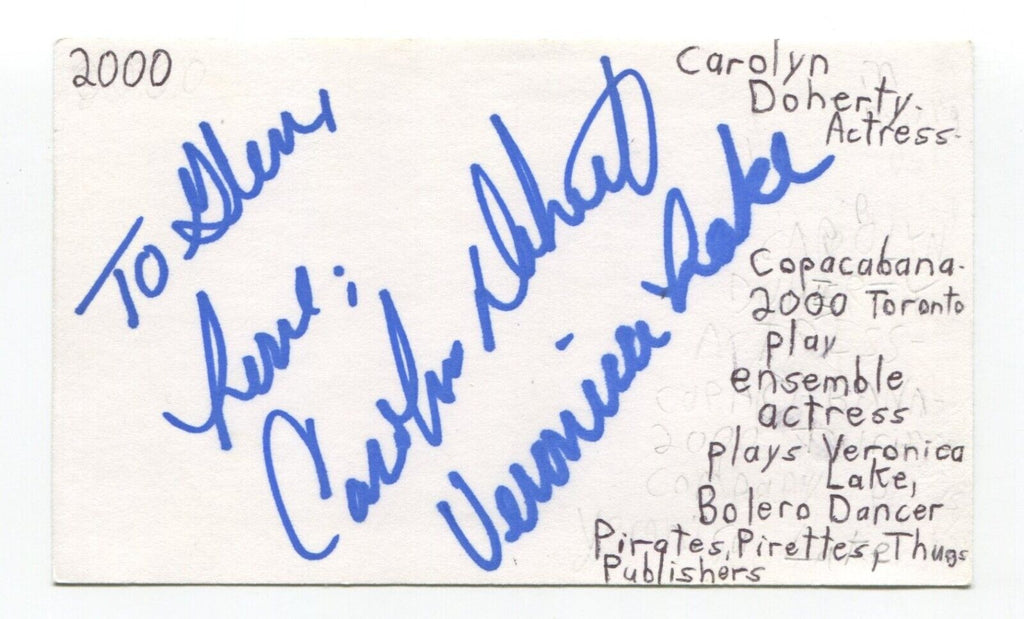 2000
Carolyn
Doherty.
Actress.
To Glenn
Love:
Carolyn Doherty
Veronica Lake
Copacabana.
2000 Toronto
play
ensemble
actress
plays Veronica
Lake,
Bolero Dancer
Pirates, Pirettes, Thugs
Publishers